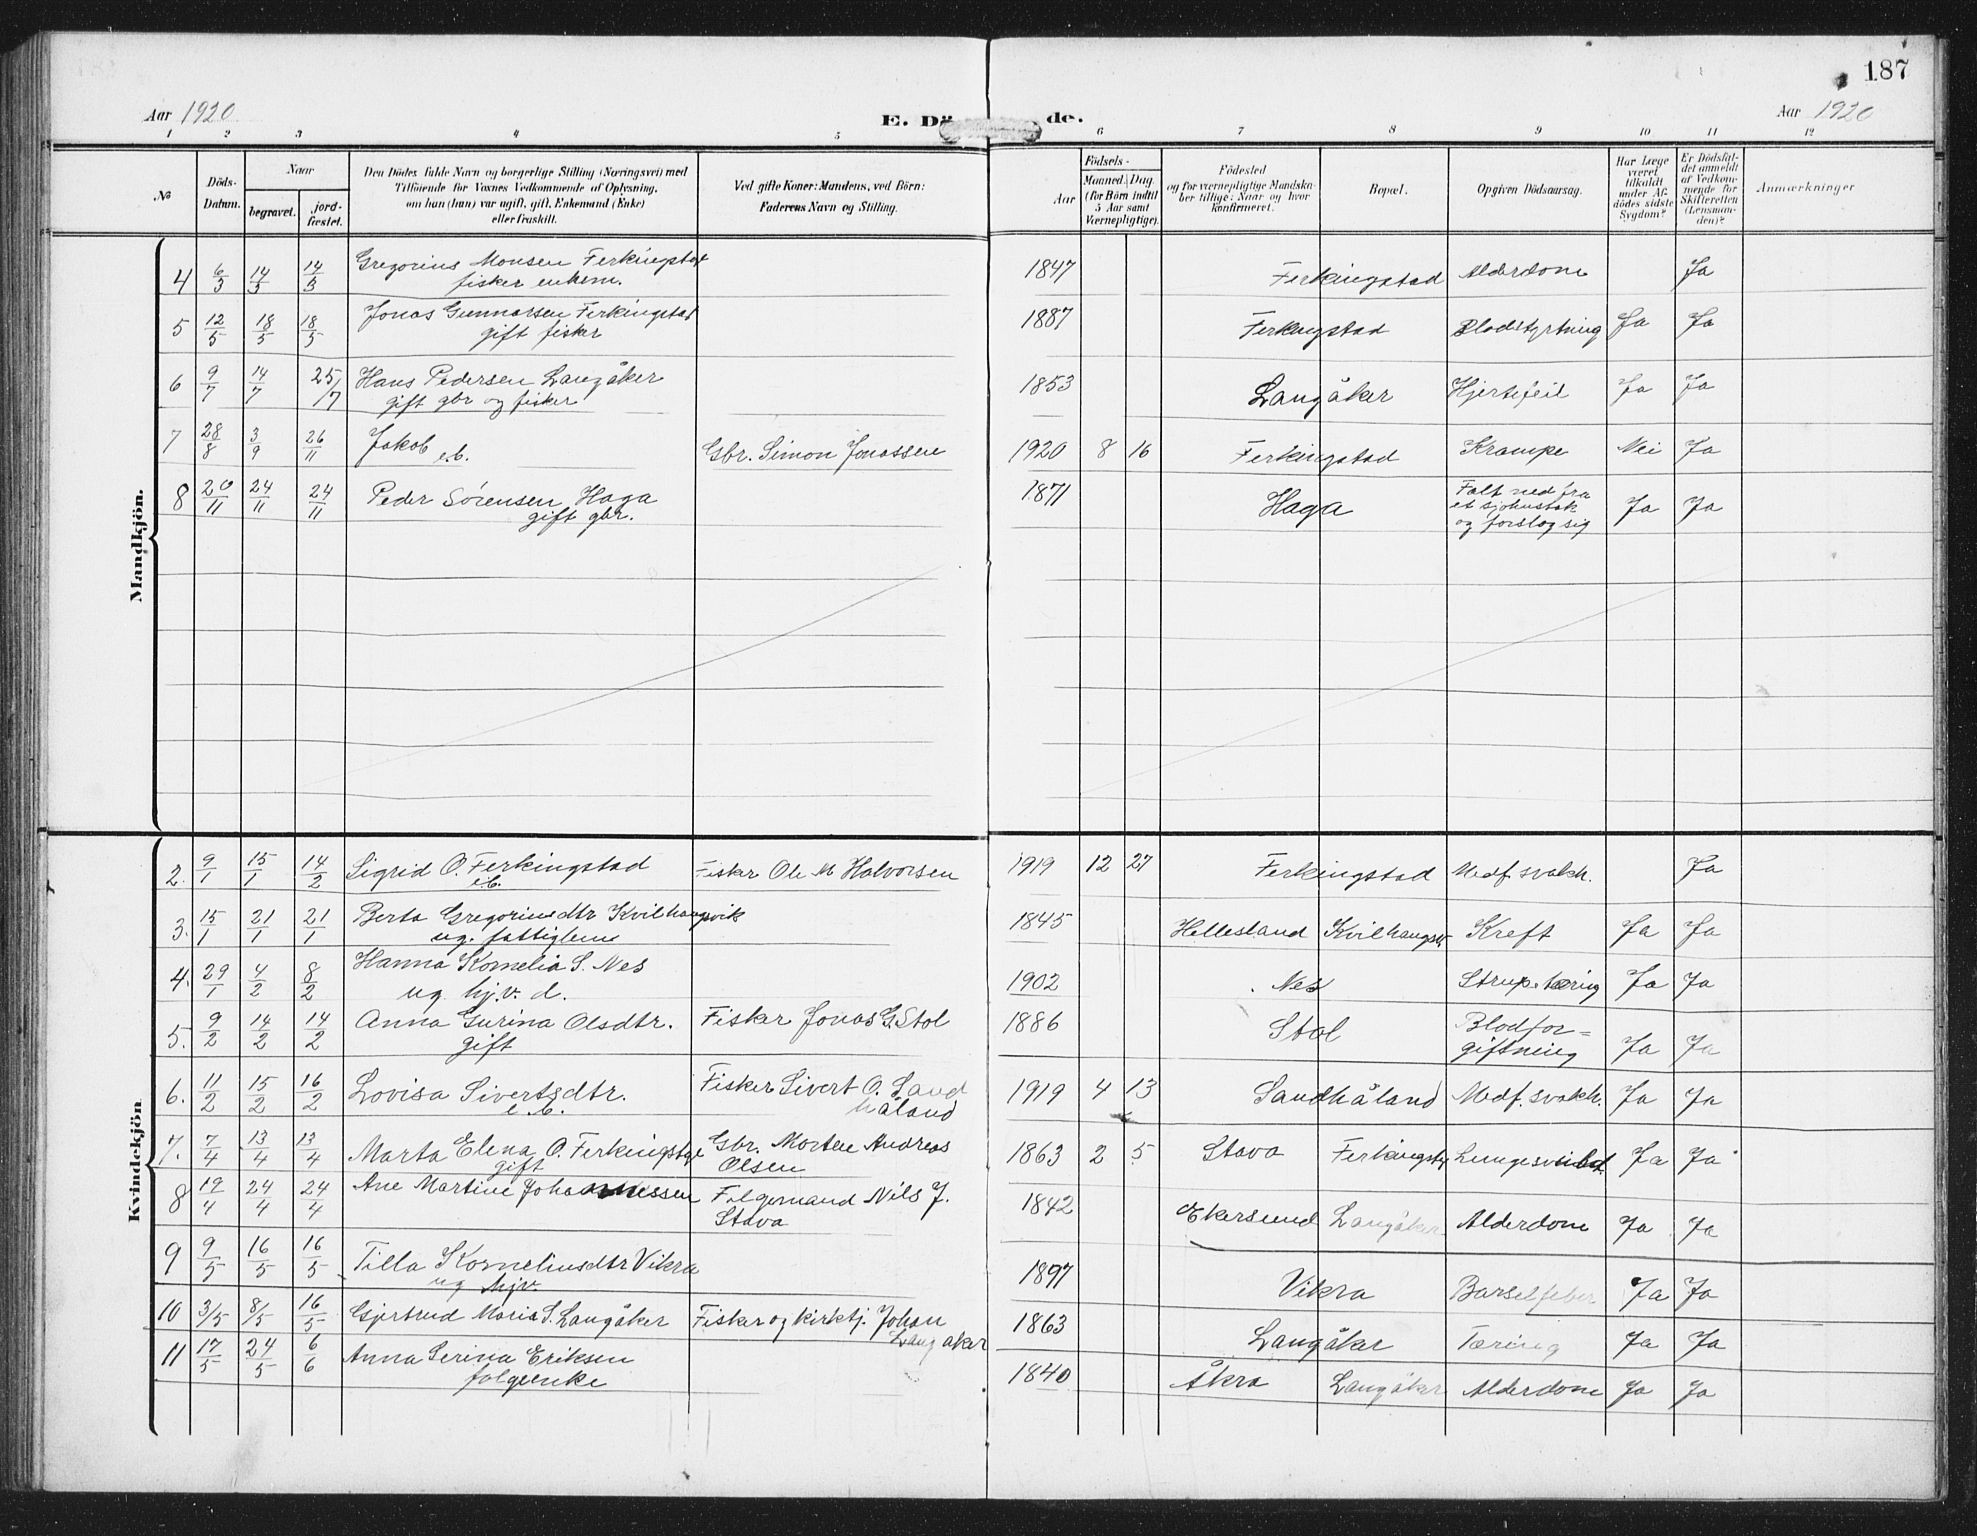 187
Aar 1920
E. Dö de.
Aar 1920
1 2 3 4 5 6 7 8 9 10 11 12
№
Döds-Datum.
Naar
begravet.
jord-fæstet.
Den Dödes fulde Navn og borgerlige Stilling (Næringsvei) med
Tilföiende for Voxnes Vedkommende af Oplysning,
om han (hun) var ugift, gift, Enkemand (Enke)
eller fraskilt.
Ved gifte Koner: Mandens, ved Börn:
Faderens Navn og Stilling.
Födsels-
Aar
Maaned. Dag.
(for Börn indtil
5 Aar samt
Værnepligtige).
Födested
og for værnepligtige Mandska-
ber tillige: Naar og hvor
konfirmeret.
Bopæl.
Opgiven Dödsaarsag.
Har Læge
været
tilkaldt
under Af-
dödes sidste
Sygdom?
Er Dödsfal-
det anmeldt
af Vedkom-
mende for
Skifteretten
(Lensman-
den)?
Anmærkninger
Mandkjön.
4 6/3 14/3 14/3 Gregorius Monsen Ferkingstad 1847 Ferkingstad Alderdom Ja
fisker enkem.
5 12/5 18/5 18/5 Jonas Gunnarsen Ferkingstad 1887 Ferkingstad Blodstyrtning Ja Ja
gift fisker
6 9/7 14/7 25/7 Hans Pedersen Langåker 1853 Langåker Hjertefeil Ja Ja
gift gbr og fisker
7 28/8 3/9 26/11 Jakob e.b. Gbr. Simon Jonassen 1920 8 16 Ferkingstad Krampe Nei Ja
8 20/11 24/11 24/11 Peder Sørensen Haga 1871 Haga Falt ned fra
gift gbr. et sjøhustak Ja Ja
og forslog sig
Kvindekjön
2. 9/1 15/1 14/2 Sigrid O. Ferkingstad Fisker Ole M Halvorsen 1919 12 27 Ferkingstad Medf. svakh. Ja
e.b.
3. 15/1 21/1 21/1 Berta Gregoriusdtr Kvilhaugsvik 1845 Hellesland Kvilhaugsv Kreft Ja Ja
ug. fattiglem
4. 29/1 4/2 8/2 Hanna Kornelia S. Nes 1902 Nes Strupetæring Ja Ja
ug. hj.v. d.
5. 9/2 14/2 14/2 Anna Gurina Olsdtr. Fisker Jonas G. Stol 1886 Stol Blodfor=
gift giftning Ja Ja
6. 11/2 15/2 16/2 Lovisa Sivertsdtr. Fisker Sivert O. Sand 1919 4 13 Sandhåland Medf. svakh. Ja Ja
e.b. håland
7. 7/4 13/4 13/4 Marta Elena O. Ferkingstad Gbr. Morten Andreas 1863 2 5 Stava Ferkingstad Ja Ja
gift Olsen
8 19/4 24/4 24/4 Ane Martine Johannessen Folgemand Nils J. 1842 Ekersund Langåker Alderdom Ja Ja
Stava
9 9/5 16/5 16/5 Tilla Korneliusdtr Vikra 1897 Vikra Barselfeber Ja Ja
ug hjv.
10 3/5 8/5 16/5 Gjertrud Maria S. Langåker Fisker og kirketj. Johan 1863 Langåker Tæring Ja Ja
Langåker
11 17/5 24/5 6/6 Anna Serina Eriksen 1840 Åkra Langåker Alderdom Ja Ja
folgeenke